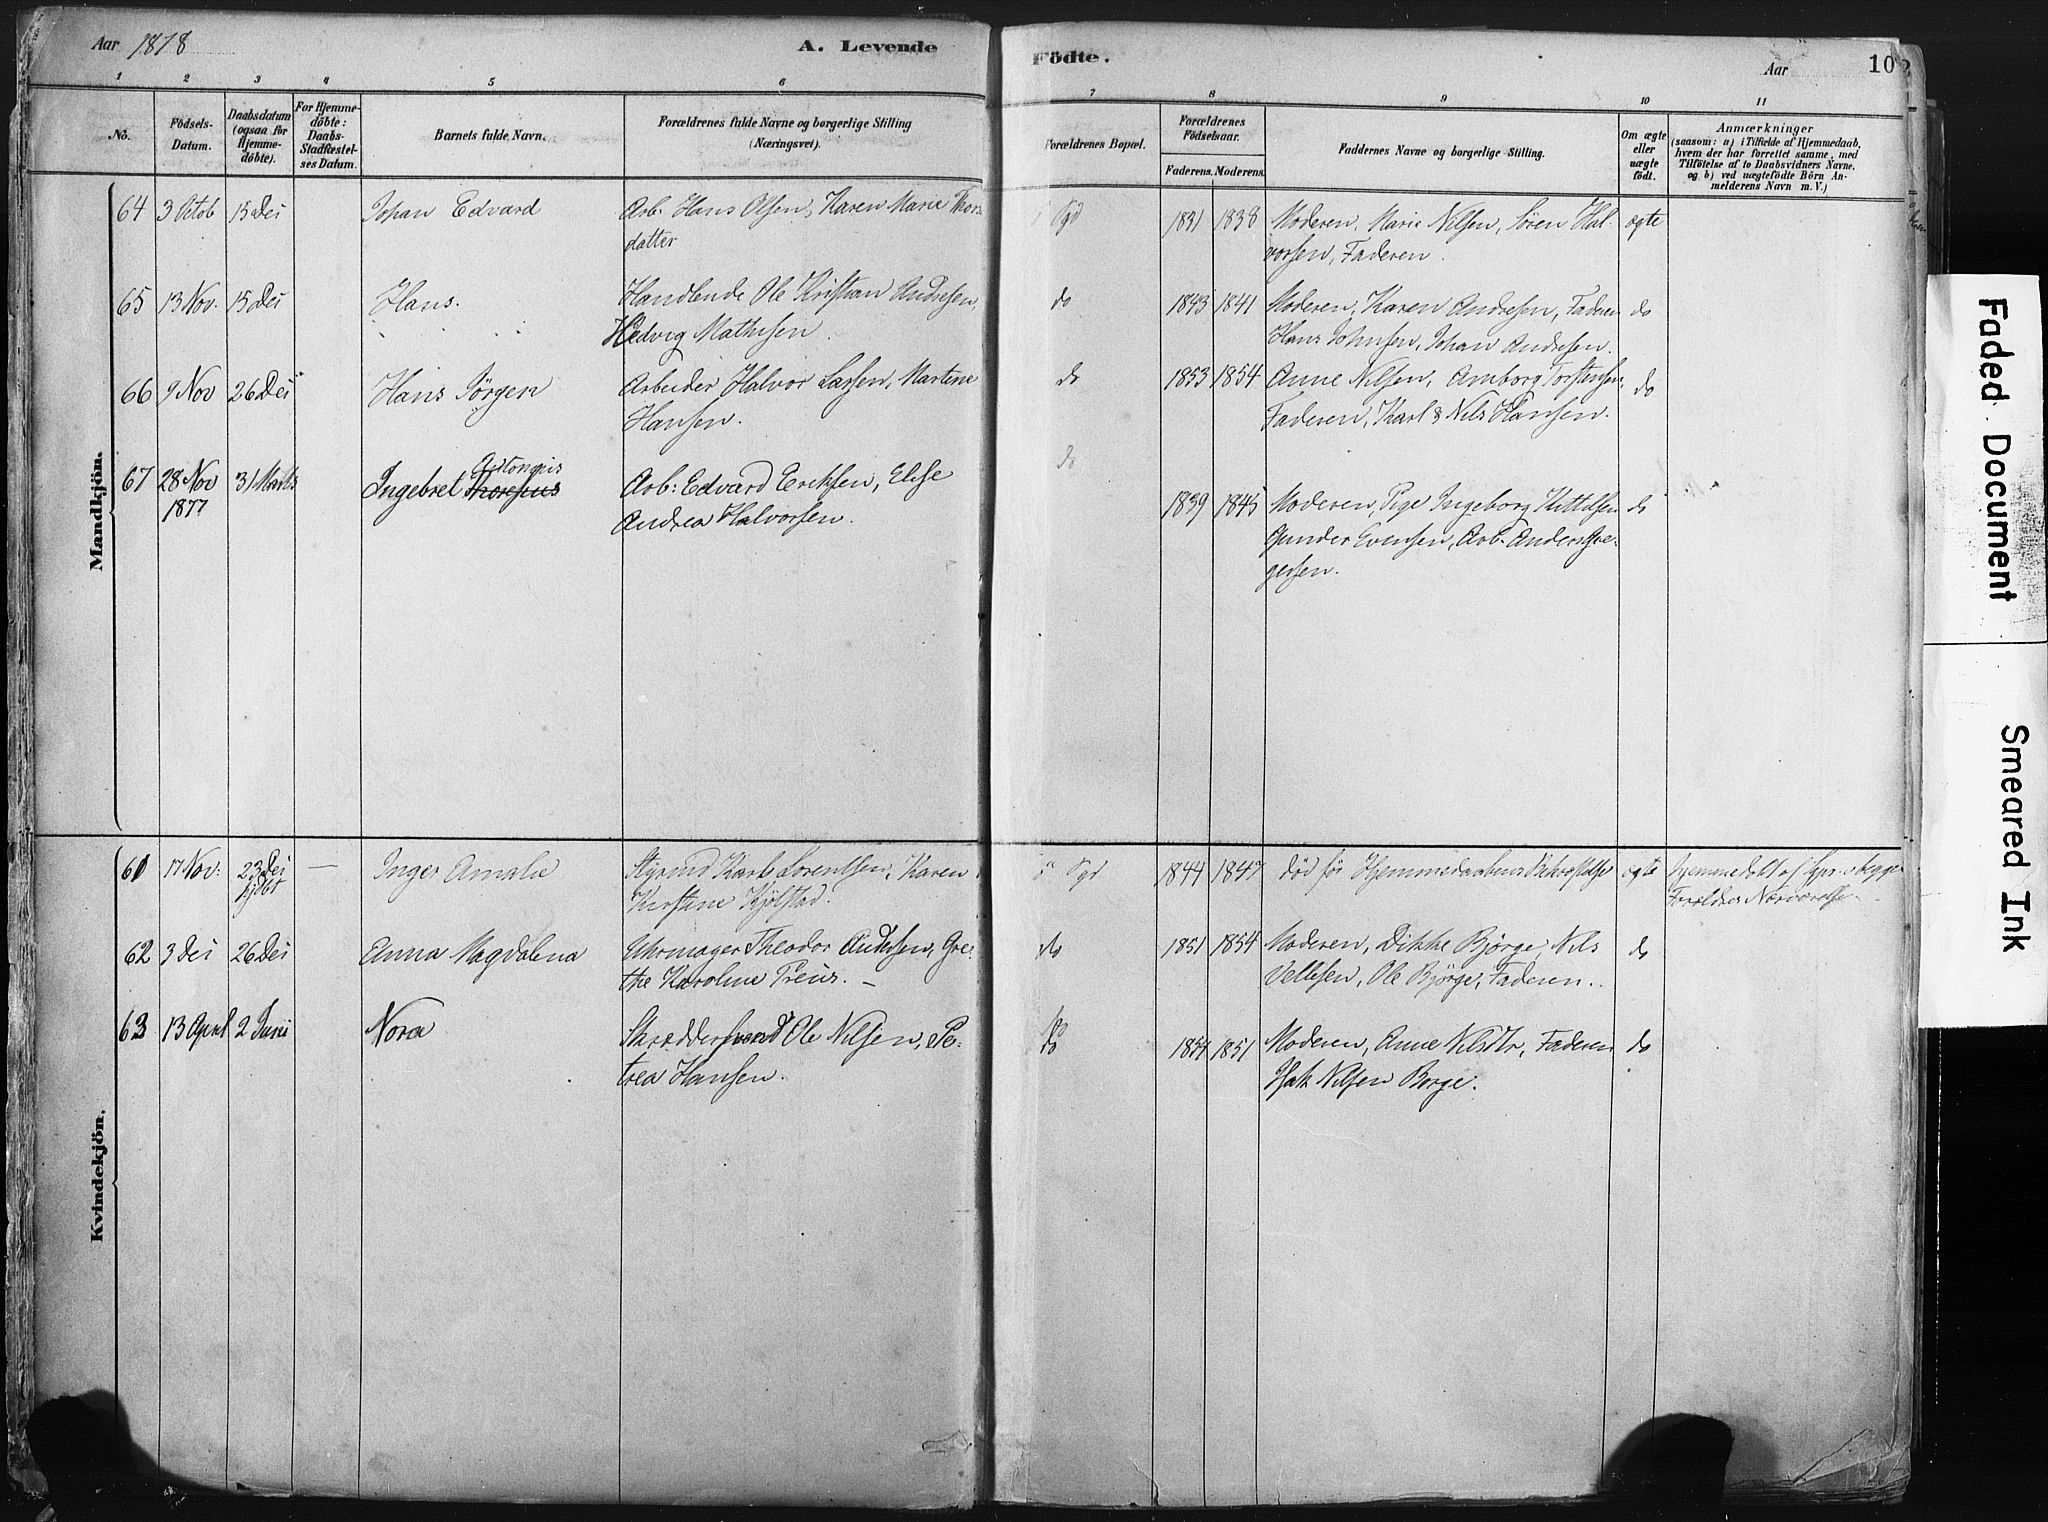 Aar 1878
A. Levende
Födte.
Aar
10
1 2 3 4 5 6 7 8 9 10 11
No.
Födsels-
Datum.
Daabsdatum
(ogsaa for
Hjemme-
döbte).
For Hjemme-
döbte:
Daabs-
Stadfæstel-
ses Datum.
Barnets fulde Navn.
Forældrenes fulde Navne og borgerlige Stilling
(Næringsvei).
Forældrenes Bopæl.
Forældrenes
Födselsaar.
Faderens. Moderens.
Faddernes Navne og borgerlige Stilling.
Om ægte
eller
uægte
födt.
Anmærkninger
(saasom: a) i Tilfælde af Hjemmedaab,
hvem der har forrettet samme, med
Tilföielse af to Daabsvidners Navne,
og b) ved uægtefödte Börn An-
melderens Navn m. V.)
Mandkjön.
64 3 Octob 15 Dei Johan Edvard Arb. Hans Olsen, Karen Marie Thors
datter
Sgd 1831 1838 Moderen, Marie Nilsen, Søren Hal-
vorsen, Faderen.
ægte
65 13 Nov. 15 Dei Hans. Handlende Ole Kristian Andresen,
Hedvig Mathisen.
do 1843 1841 Moderen, Karen Andresen, Faderen
Hans Johnsen, Johan Andresen.
do
66 9 Nov 26 Dei Hans Jörgen Arbeider Halvor Larsen, Martine
Hansen.
do 1853 1854 Anne Nilsen, Amborg Torstensen,
Faderen, Karl & Nils Hansen.
do
67 28 Nov
1877
31 Marts Ingebret Antonius Thoresius Arb: Edvard Eriksen, Elise
Andrea Halvorsen.
do 1839 1845 Moderen, Pige Ingeborg Kittilsen
Gunder Evensen, Arb. Anders Gre-
gersen.
do
Kvindekjön.
61 17 Nov: 23 Dei
hjdbt
— Inger Amalie Styrmd Karl Lorentsen, Karen
Kirstine Kjölstad.
Sgd 1844 1847 Död før Hjemmedaabens Bekræftelse ægte Hjemmedøbt af begge
Forældres Nærværelse.
62 3 Dei 26 Dei Anna Magdalena Uhrmager Theodor Andersen, Gre-
the Karoline Preus. —
do 1851 1854 Moderen, Dikke Björge, Nils
Vellesen, Ole Björge, Faderen.
do
63 13 April 2 Juni Nora Skrædder Ole Nilsen, Pe-
trea Hansen.
do 1854 1851 Moderen, Anne Nilsdtr, Faderen
Isak Nilsen Borge.
do
Faded Document
Smeared Ink